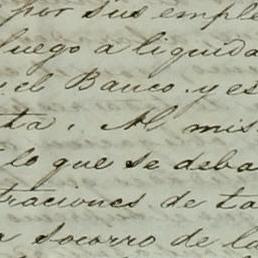 por sus emple
luego a liquida
el Banco. y es
ta. Al mis
lo que se deba
traciones de ta
a socorro de la